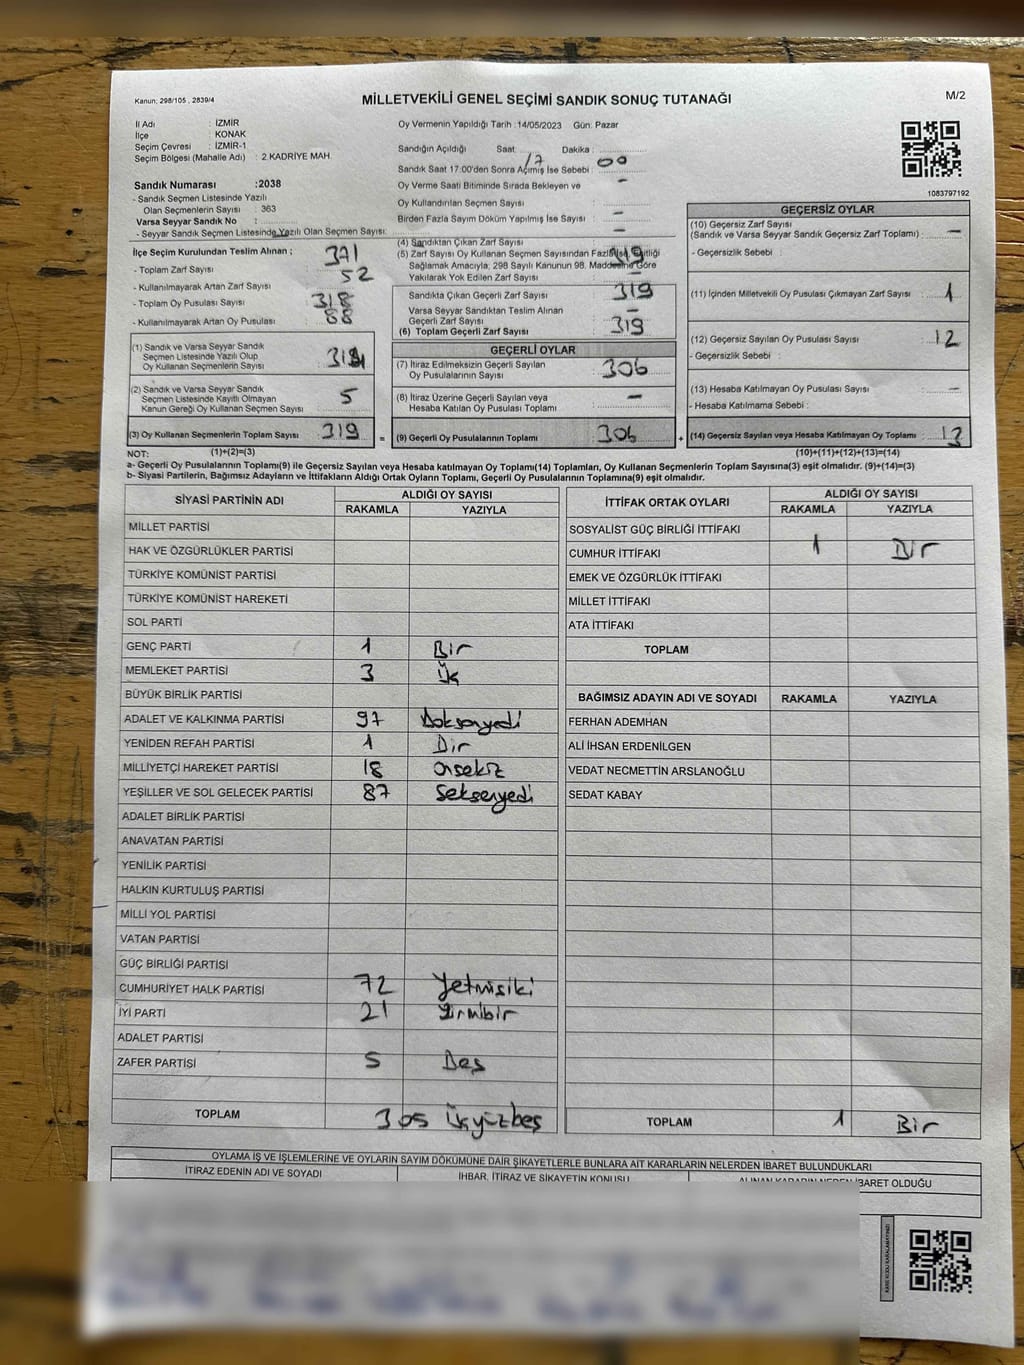 Kanun: 298/105 , 2839/4
MİLLETVEKİLİ GENEL SEÇİMİ SANDIK SONUÇ TUTANAĞI
M/2
İl Adı : İZMİR
İlçe : KONAK
Seçim Çevresi : İZMİR-1
Seçim Bölgesi (Mahalle Adı) : 2.KADRİYE MAH.
Oy Vermenin Yapıldığı Tarih :14/05/2023 Gün: Pazar
Sandığın Açıldığı Saat 17 Dakika : 00
Sandık Saat 17:00'den Sonra Açımış İse Sebebi :
Oy Verme Saati Bitiminde Sırada Bekleyen ve –
Oy Kullandırılan Seçmen Sayısı :
Birden Fazla Sayım Döküm Yapılmış İse Sayısı : –
1083797192
Sandık Numarası :2038
- Sandık Seçmen Listesinde Yazılı
Olan Seçmenlerin Sayısı : 363
Varsa Seyyar Sandık No :
- Seyyar Sandık Seçmen Listesinde Yazılı Olan Seçmen Sayısı: –
İlçe Seçim Kurulundan Teslim Alınan ;
- Toplam Zarf Sayısı : 371
- Kullanılmayarak Artan Zarf Sayısı : 52
- Toplam Oy Pusulası Sayısı : 318
- Kullanılmayarak Artan Oy Pusulası : 88
(1) Sandık ve Varsa Seyyar Sandık
Seçmen Listesinde Yazılı Olup
Oy Kullanan Seçmenlerin Sayısı :
(2) Sandık ve Varsa Seyyar Sandık
Seçmen Listesinde Kayıtlı Olmayan
Kanun Gereği Oy Kullanan Seçmen Sayısı : 5
(3) Oy Kullanan Seçmenlerin Toplam Sayısı : 319
(4) Sandıktan Çıkan Zarf Sayısı : 319
(5) Zarf Sayısı Oy Kullanan Seçmen Sayısından Fazla İse, Eşitliği
Sağlamak Amacıyla, 298 Sayılı Kanunun 98. Maddesine Göre
Yakılarak Yok Edilen Zarf Sayısı : –
Sandıkta Çıkan Geçerli Zarf Sayısı : 319
Varsa Seyyar Sandıktan Teslim Alınan
Geçerli Zarf Sayısı : –
(6) Toplam Geçerli Zarf Sayısı : 319
GEÇERLİ OYLAR
(7) İtiraz Edilmeksizin Geçerli Sayılan
Oy Pusulalarının Sayısı : 306
(8) İtiraz Üzerine Geçerli Sayılan veya
Hesaba Katılan Oy Pusulası Toplamı : –
= (9) Geçerli Oy Pusulalarının Toplamı : 306
GEÇERSİZ OYLAR
(10) Geçersiz Zarf Sayısı
(Sandık ve Varsa Seyyar Sandık Geçersiz Zarf Toplamı) : –
- Geçersizlik Sebebi :
(11) İçinden Milletvekili Oy Pusulası Çıkmayan Zarf Sayısı : 1
(12) Geçersiz Sayılan Oy Pusulası Sayısı : 12
- Geçersizlik Sebebi :
(13) Hesaba Katılmayan Oy Pusulası Sayısı : –
- Hesaba Katılmama Sebebi :
+ (14) Geçersiz Sayılan veya Hesaba Katılmayan Oy Toplamı : 13
NOT: (1)+(2)=(3) (10)+(11)+(12)+(13)=(14)
a- Geçerli Oy Pusulalarının Toplamı(9) ile Geçersiz Sayılan veya Hesaba katılmayan Oy Toplamı(14) Toplamları, Oy Kullanan Seçmenlerin Toplam Sayısına(3) eşit olmalıdır. (9)+(14)=(3)
b- Siyasi Partilerin, Bağımsız Adayların ve İttifakların Aldığı Ortak Oyların Toplamı, Geçerli Oy Pusulalarının Toplamına(9) eşit olmalıdır.
SİYASİ PARTİNİN ADI ALDIĞI OY SAYISI
RAKAMLA YAZIYLA
MİLLET PARTİSİ
HAK VE ÖZGÜRLÜKLER PARTİSİ
TÜRKİYE KOMÜNİST PARTİSİ
TÜRKİYE KOMÜNİST HAREKETİ
SOL PARTİ
GENÇ PARTİ 1 Bir
MEMLEKET PARTİSİ 3 Üç
BÜYÜK BİRLİK PARTİSİ
ADALET VE KALKINMA PARTİSİ 97 Doksanyedi
YENİDEN REFAH PARTİSİ 1 Bir
MİLLİYETÇİ HAREKET PARTİSİ 18 Onsekiz
YEŞİLLER VE SOL GELECEK PARTİSİ 87 Seksenyedi
ADALET BİRLİK PARTİSİ
ANAVATAN PARTİSİ
YENİLİK PARTİSİ
HALKIN KURTULUŞ PARTİSİ
MİLLİ YOL PARTİSİ
VATAN PARTİSİ
GÜÇ BİRLİĞİ PARTİSİ
CUMHURİYET HALK PARTİSİ 72 Yetmişiki
İYİ PARTİ 21 Yirmibir
ADALET PARTİSİ
ZAFER PARTİSİ 5 Beş
TOPLAM 305 Üçyüzbeş
İTTİFAK ORTAK OYLARI ALDIĞI OY SAYISI
RAKAMLA YAZIYLA
SOSYALİST GÜÇ BİRLİĞİ İTTİFAKI
CUMHUR İTTİFAKI 1 Bir
EMEK VE ÖZGÜRLÜK İTTİFAKI
MİLLET İTTİFAKI
ATA İTTİFAKI
TOPLAM
BAĞIMSIZ ADAYIN ADI VE SOYADI RAKAMLA YAZIYLA
FERHAN ADEMHAN
ALİ İHSAN ERDENİLGEN
VEDAT NECMETTİN ARSLANOĞLU
SEDAT KABAY
TOPLAM 1 Bir
OYLAMA İŞ VE İŞLEMLERİNE VE OYLARIN SAYIM DÖKÜMÜNE DAİR ŞİKAYETLERLE BUNLARA AİT KARARLARIN NELERDEN İBARET BULUNDUKLARI
İTİRAZ EDENİN ADI VE SOYADI
İHBAR, İTİRAZ VE ŞİKAYETİN KONUSU
ALINAN KARARIN NEDEN İBARET OLDUĞU